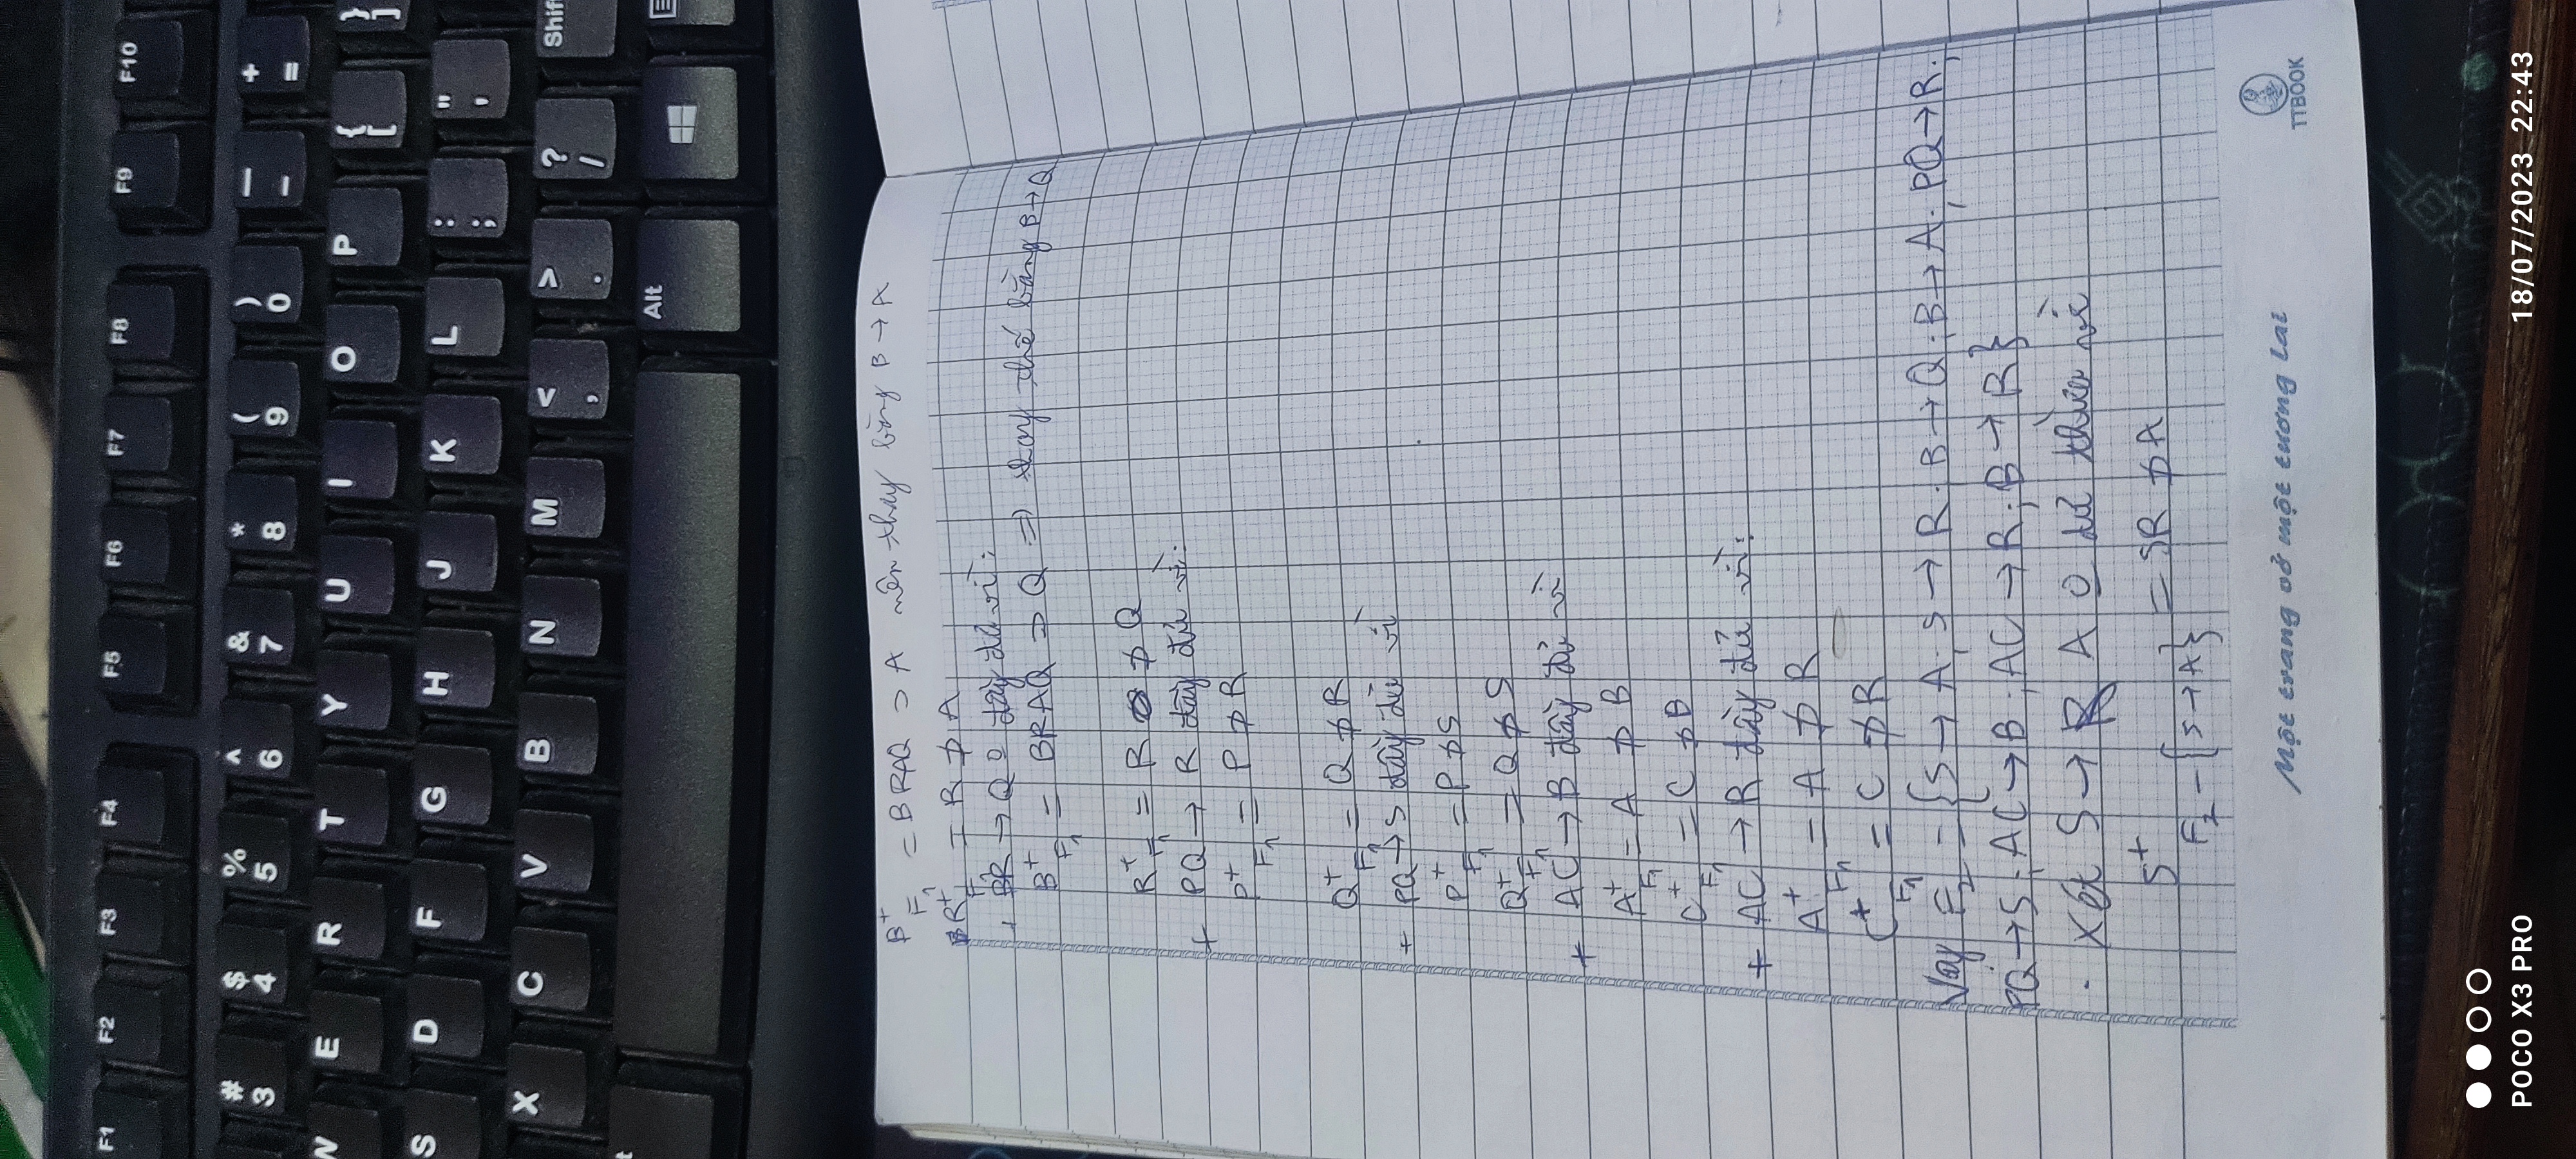 F1 F2 F3 F4 F5 F6 F7 F8 F9 F10
# $ % ^ & * ( ) — +
3 4 5 6 7 8 9 0 - =
W E R T Y U I O P { }
[ ]
S D F G H J K L : "
; '
X C V B N M < > ? Shif
, . /
t Alt
B⁺F₁ = BRAQ ⊃ A nên thay bằng B → A
R⁺F = R ⊅ A
+ BR → Q o đầy đủ vì:
B⁺F₁ = BRAQ ⊃ Q ⇒ thay thế bằng B → Q
R⁺F₁ = R ⊅ Q
+ PQ → R đầy đủ vì:
P⁺F₁ = P ⊅ R
Q⁺F₁ = Q ⊅ R
+ PQ → S đầy đủ vì
P⁺F₁ = P ⊅ S
Q⁺F₁ = Q ⊅ S
+ AC → B đầy đủ vì
A⁺F₁ = A ⊅ B
C⁺F₁ = C ⊅ B
+ AC → R đầy đủ vì:
A⁺F₁ = A ⊅ R
C⁺F₁ = C ⊅ R
Vay F₂ = {S → A; S → R; B → Q; B → A; PQ → R;
PQ → S; AC → B; AC → R; B → R}
. Xét S → A o dư thừa vì
S⁺F₂ - {S → A} = SR ⊅ A
Một trang vở một tương lai
TTBOOK
POCO X3 PRO
18/07/2023 22:43